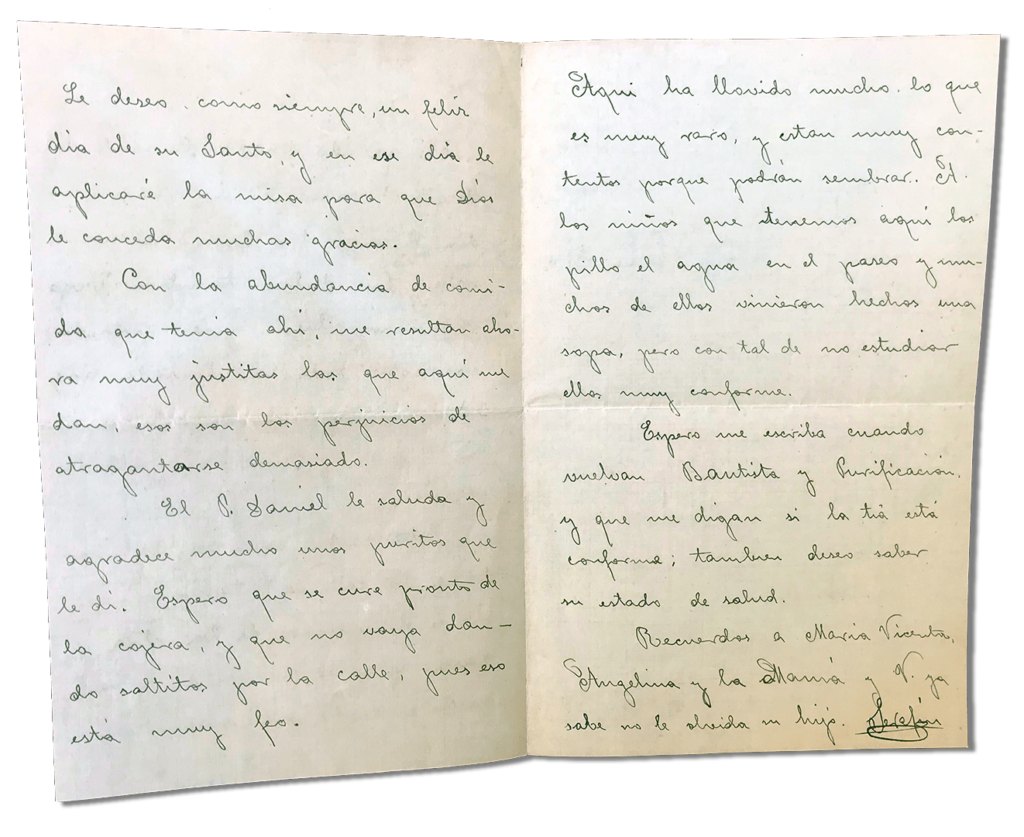 Le deseo como siempre, un feliz
dia de su Santo, y en ese dia le
aplicaré la misa para que Dios
le conceda muchas gracias.
Con la abundancia de comi-
da que tenia ahi, me resultan aho-
ra muy justitas las que aquí me
dan, esos son los perjuicios de
atragantarse demasiado.
El P. Daniel le saluda y
agradece mucho unos puritos que
le di. Espero que se cure pronto de
la cojera, y que no vaya dan-
do saltitos por la calle, pues eso
está muy feo.
Aqui ha llovido mucho lo que
es muy raro, y estan muy con-
tentos porque podrán sembrar. A
los niños que tenemos aquí los
pillo el agua en el paseo y mu-
chos de ellos vinieron hechos una
sopa, pero con tal de no estudiar
ellos muy conforme.
Espero me escriba cuando
vuelvan Bautista y Purificación,
y que me digan si la tiá está
conforme; tambien deseo saber
su estado de salud.
Recuerdos a Maria Vicenta,
Angelina y la Mamá y V. ya
sabe no le olvida su hijo. Serafín